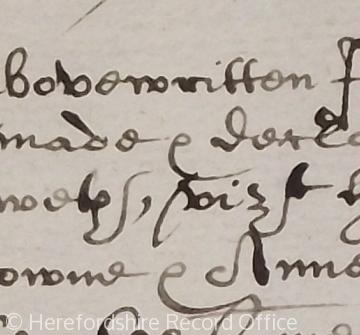 bovewritten
made & decla
viz^t
owne & Anne
© Herefordshire Record Office